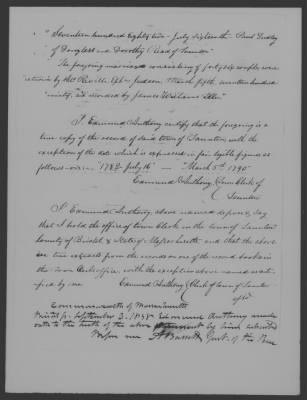 "Seventeen hundred Eighty two - July Sixteenth - Paul Dudley
of Douglass and Dorothy Read of Taunton"
The foregoing marriages consisting of forty six couple were
returned by Robt. Deville Esq. Judson, "March fifth, seventeen hundred
ninety", and recorded by James Williams Clerk"
I Edmund Anthony certify that the foregoing is a
true copy of the record of said town of Taunton, with the
exception of the date which is expressed in fair legible figures as
follows - viz - "1782 July 16" - "March 5th 1790"
Edmund Anthony, Town Clerk of
Taunton
I Edmund Anthony, above named depose & say
that I hold the office of town Clerk in the town of Taunton
County of Bristol & State of Massachusetts and that the above
are true extracts from the records on one of the record books in
the town Clerk's office, with the exception above named certi-
fied by me Edmund Anthony Clerk of town of Taunton
Commonwealth of Massachusetts
Bristol ss. September 3. 1838 Edmund Anthony made
oath to the truth of the above statement by him subscribed
Before me Just. of the Peace